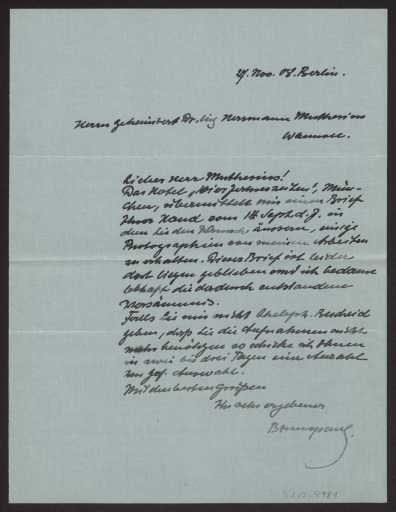 27. Nov. 08. Berlin.
Herrn Geheimrat Dr. ing Herrmann Muthesius
Wannsee.
Lieber Herr Muthesius!
Das Hotel „Vier Jahreszeiten", Mün-
chen, übermittelt mir einen Brief
Ihrer Hand vom 14. Sept. d. J. in
dem Sie den Wunsch äussern, einige
Photographien von meinen Arbeiten
zu erhalten. Dieser Brief ist leider
dort liegen geblieben und ich bedaure
lebhaft die dadurch entstandene
Versäumnis.
Falls Sie mir nicht Bescheid
geben, daß Sie die Aufnahmen nicht
mehr benötigen so schicke ich Ihnen
in zwei bis drei Tagen eine Anzahl
zur gef. Auswahl.
Mit den besten Grüßen
Ihr sehr ergebener
Bruno Paul.